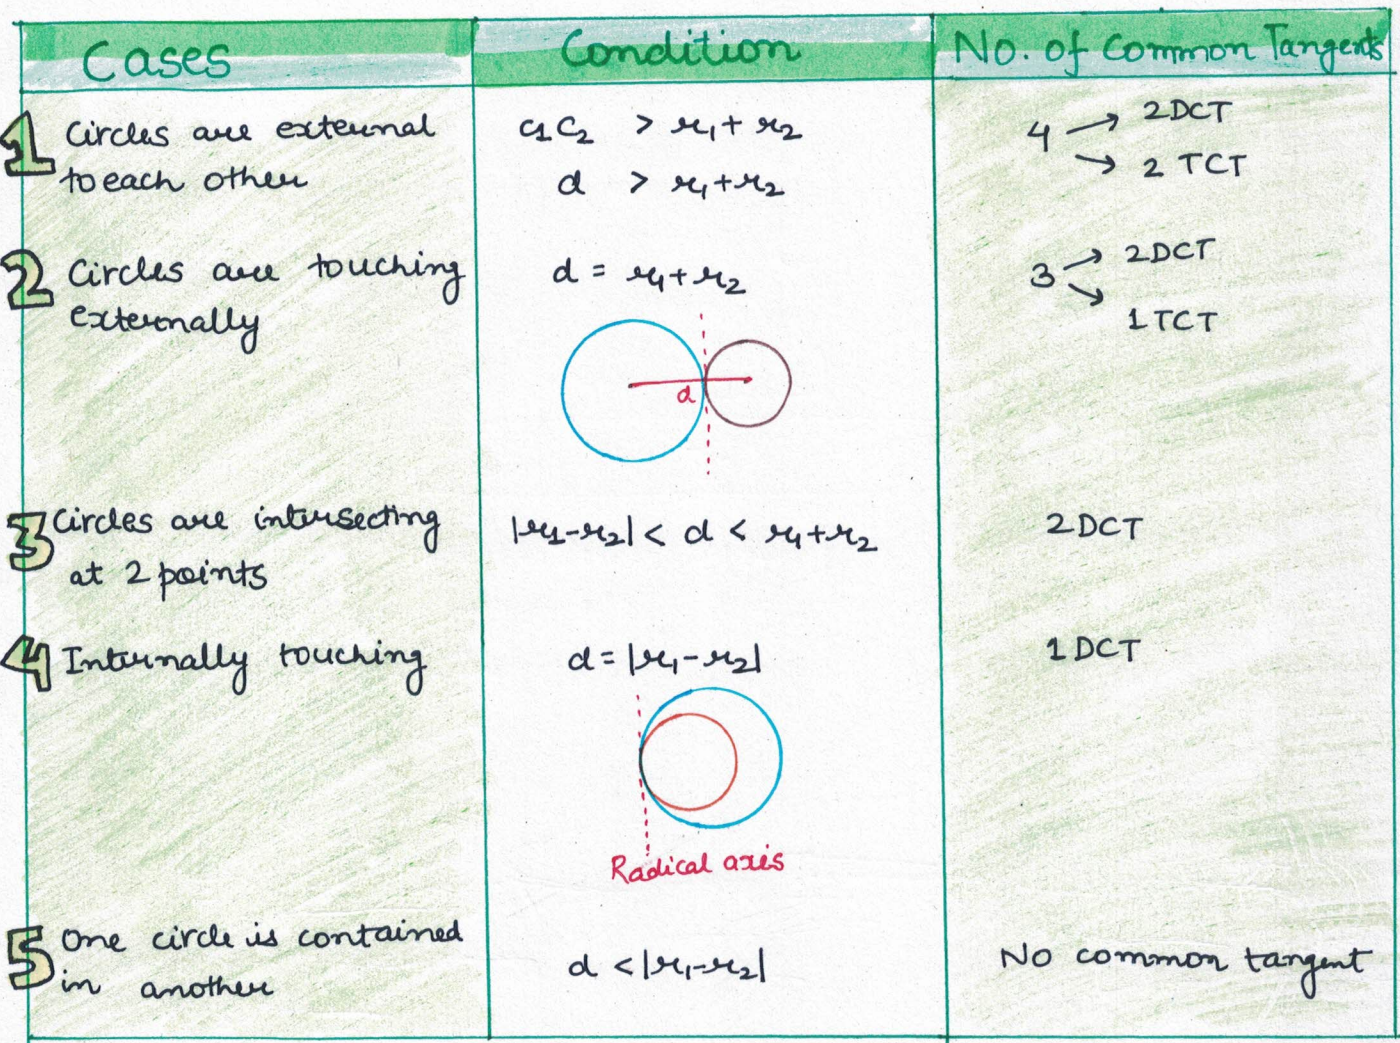 Cases
Condition
No. of Common Tangents
1
Circles are external
to each other
C₁C₂ > r₁ + r₂
d > r₁ + r₂
4 → 2DCT
→ 2 TCT
2
Circles are touching
externally
d = r₁ + r₂
d
3 → 2DCT
→ 1 TCT
3
Circles are intersecting
at 2 points
|r₁-r₂| < d < r₁+r₂
2DCT
4
Internally touching
d = |r₁-r₂|
Radical axis
1DCT
5
One circle is contained
in another
d < |r₁-r₂|
No common tangent